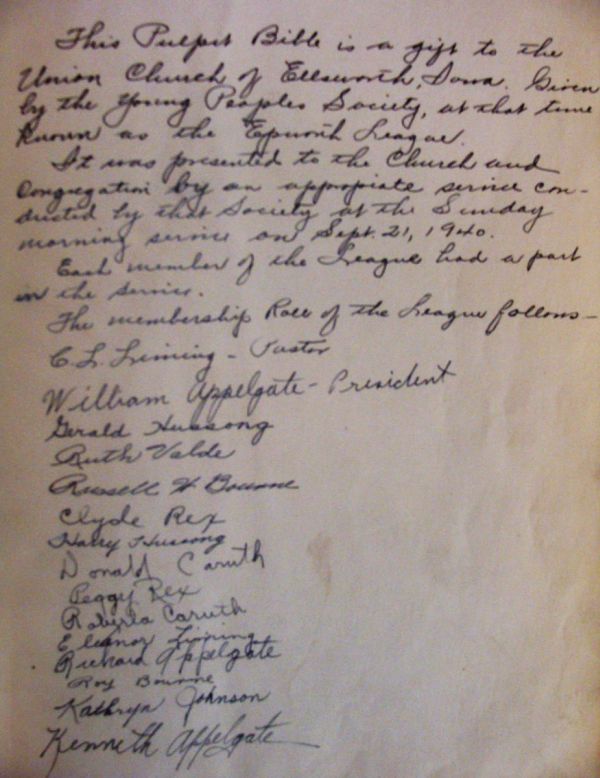 This Pulpit Bible is a gift to the
Union Church of Ellsworth, Iowa. Given
by the Young Peoples Society, at that time
known as the Epworth League.
It was presented to the Church and
congregation by an appropiate service con-
ducted by that Society at the Sunday
morning service on Sept. 21, 1940.
Each member of the League had a part
in the service.
The membership Role of the League follows-
C. L. Liming - Pastor
William Appelgate - President
Gerald Hussong
Ruth Valde
Russell W Bourne
Clyde Rex
Harry Hussong
Donald Caruth
Peggy Rex
Roberta Caruth
Eleanor Liming
Richard Appelgate
Roy Bourne
Kathryn Johnson
Kenneth Appelgate